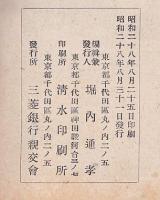 昭和二十八年八月二十五日印刷
昭和二十八年八月三十一日発行
東京都千代田区丸ノ内二ノ五
編輯兼
発行人 堀内通孝
東京都千代田区神田
印刷所 清水印刷所
東京都千代田区丸ノ内二ノ五
発行所 三菱銀行親交会